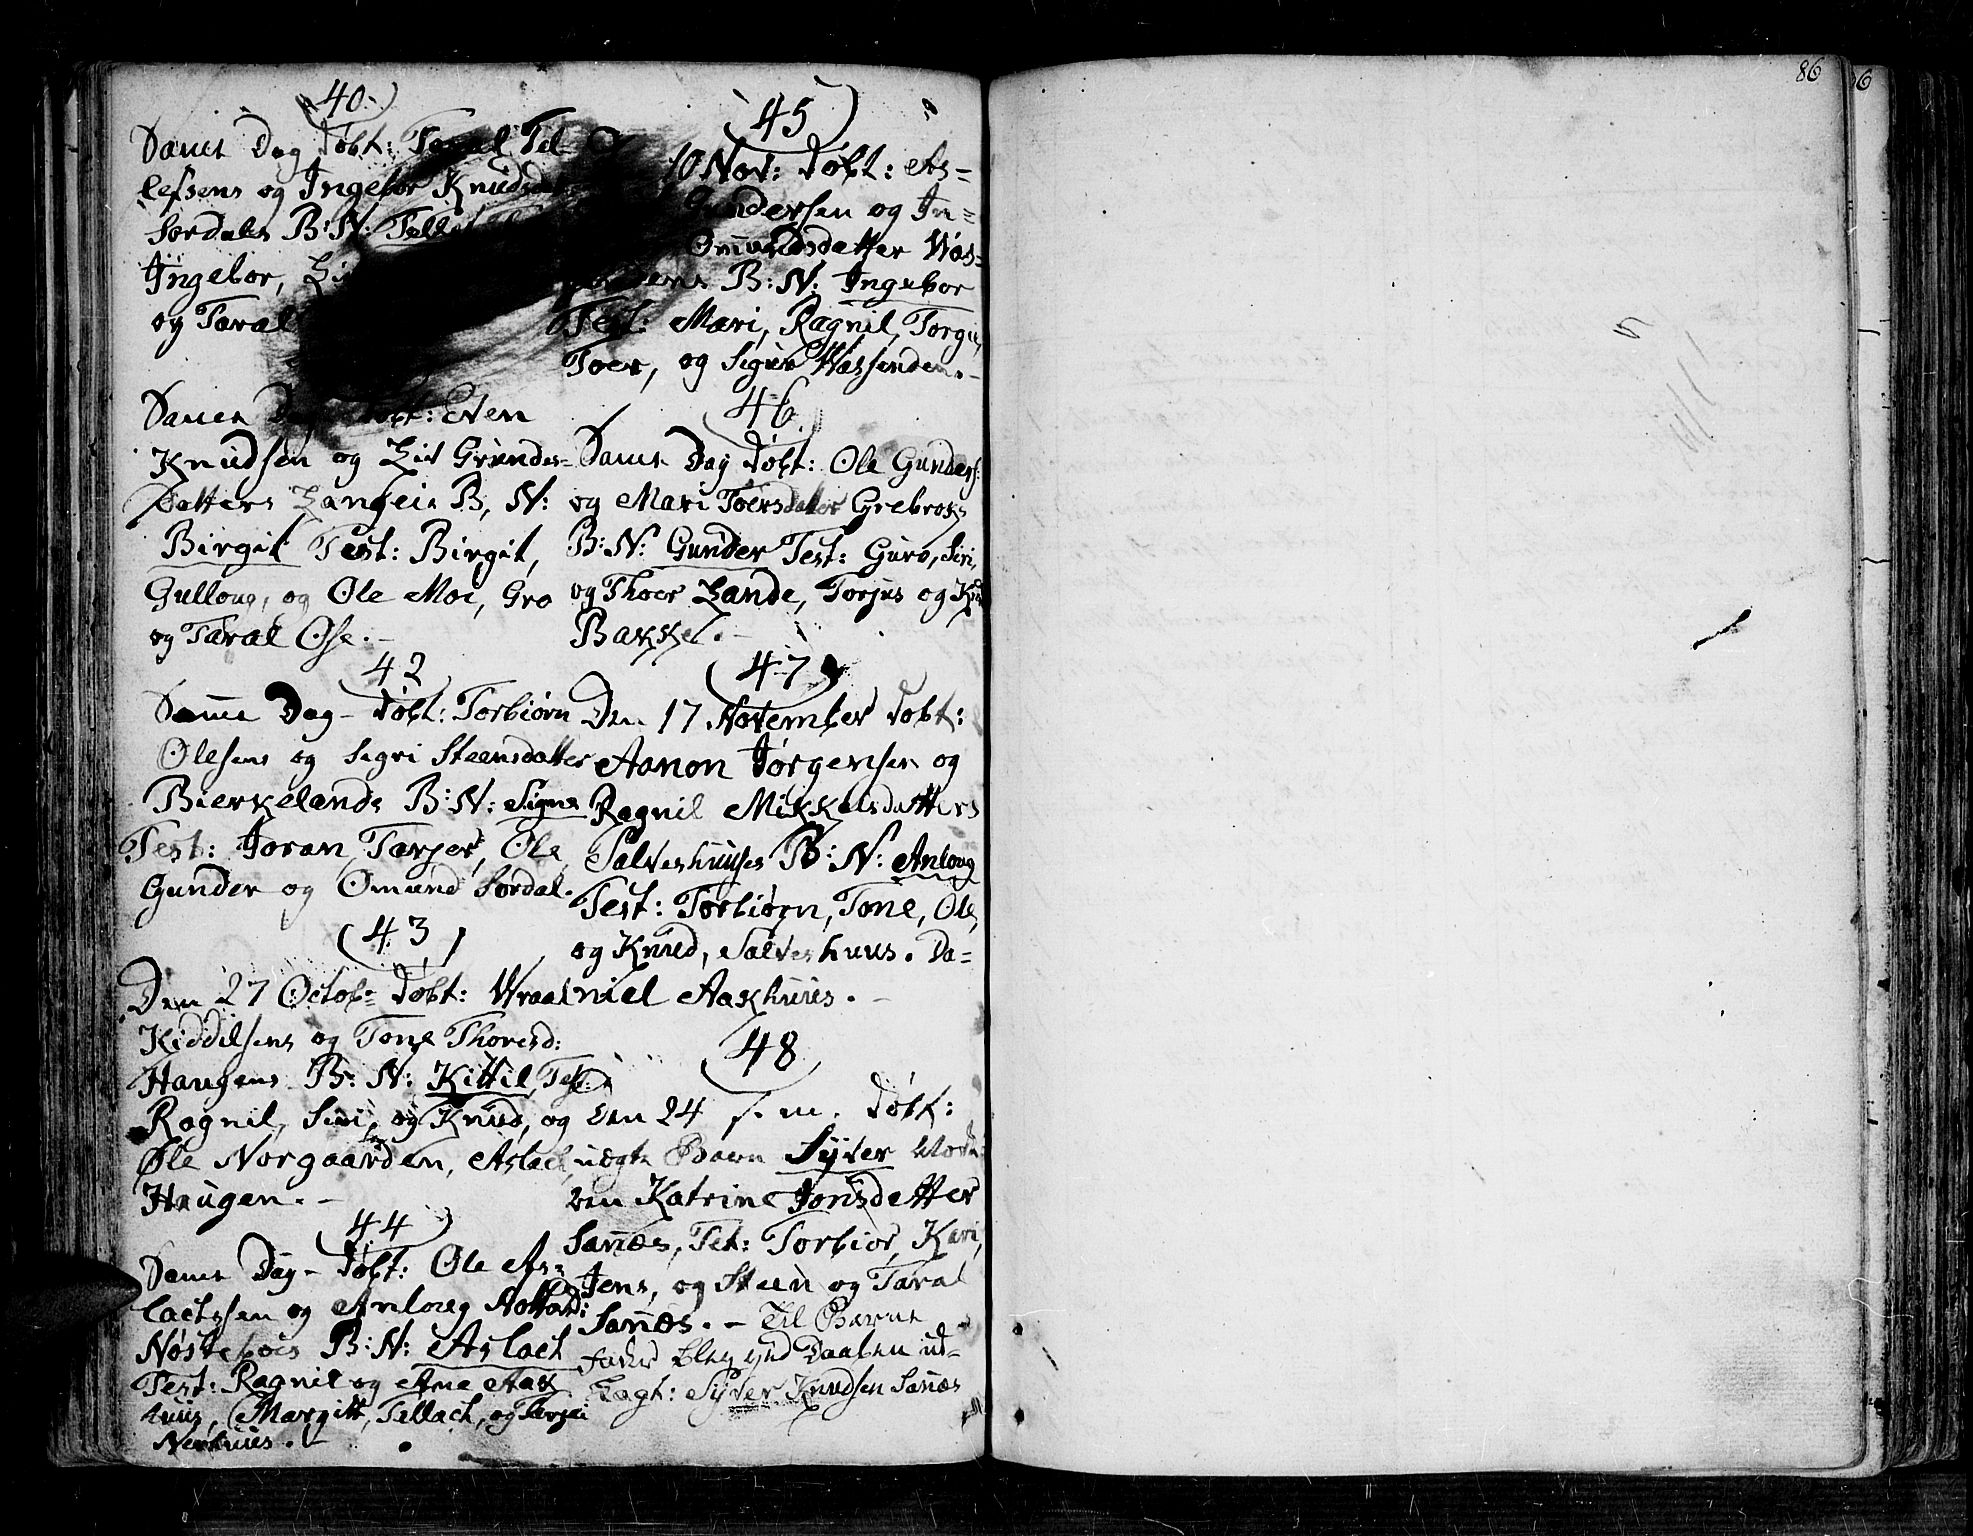 40
Same Dag Døbt: Taral Tel-
lefsens og Ingebor Knuds
Sordals B:N:
Ingebor,
og Taral
Same Dag Døbt: Even
Knudsen og Liv Gunders-
Datters Langeia B, N:
Birgit Test: Birgit,
Gulloug, og Ole Moi, Gro
og Taral Ose. -
42
Same Dag - Døbt: Torbiørn
Olesens og Segri Steensdatter
Bierkelands B:N: Signe
Test: Joran, Tarjer, Ole
Gunder og Omund Sordal.
(43)
Den 27 Octob: Døbt: Wraal
Kiddilsens og Tone Thoresd:
Haugens B: N: Kittil, Test:
Ragnil, Siri, og Knud, og
Ole Norgaarden, Aslach
Haugen. -
44
Same Dag - Døbt: Ole As-
lachssen og Anloug
Nøstebøes B:N: Aslach
Test: Ragnil og Ane Aak
huus, Margitt, Tellach, og Tarjei
Nerhuus. -
(45)
10 Nov: Døbt: As-
Gundersen og In-
Omundsdatter Was-
B:N: Ingebor
Test: Mari, Ragnil, Torgus,
Toer, og Sigur Wassenden. -
46
Same Dag Døbt: Ole Gunders:
og Mari Toersdatter Grebroks
B:N: Gunder Test: Guro, Siri,
og Thoer Lande, Torjus og Knud
Bakke. -
(47)
Den 17. November Døbt:
Aanon Jørgensen og
Ragnil Mikkelsdatters
Salveshuuses B:N: Anloug
Test: Torbiørn, Tone, Ole,
og Knud, Salveshuus. Da-
niel Aakhuus. -
48
Den 24 s. m. Døbt:
uægte Barn Syver Mode-
ren Katrine Jonsdatter
Sanæs, Tet: Torbior, Kari,
Jens, og Steen og Taral
Sanæs. - Til Barnets
Fader blev ved Daaben ud-
Lagt: Syver Knudsen Sanæs
86
6